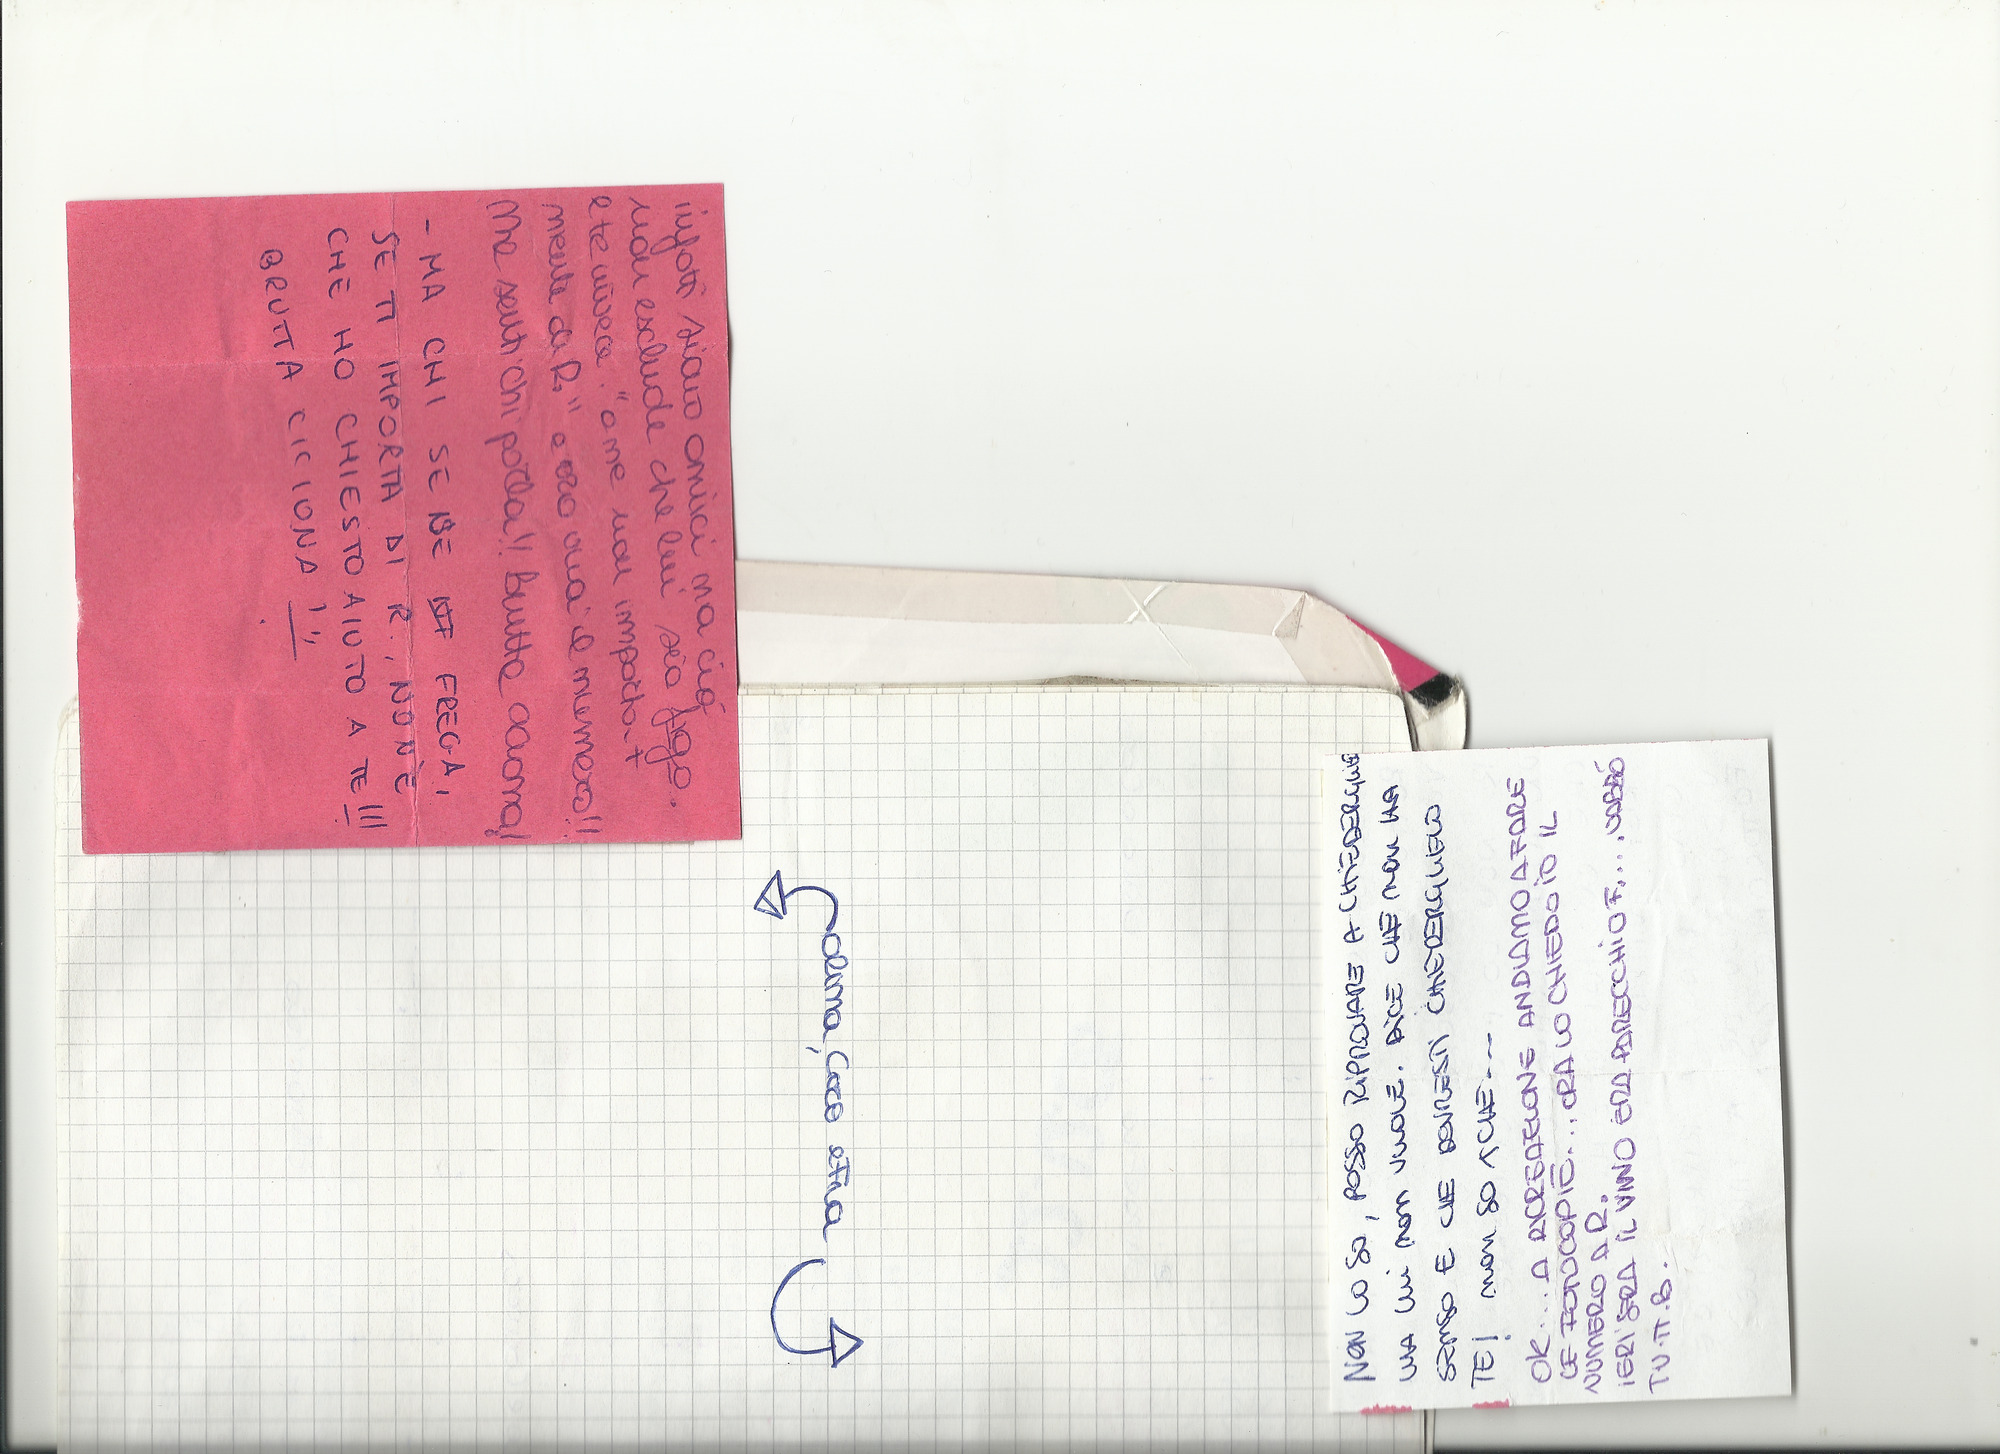 infatti siamo amici ma ciò
non esclude che lui sia figo.
e te invece "a me non import
mente da R." e ora vuoi il numero!!
Ma senti chi parla!! brutta
- MA CHI SE NE FREGA,
SE TI IMPORTA DI R., NON È
CHE HO CHIESTO AIUTO A TE!!!
BRUTTA CICIONA!!
NON LO SO, POSSO RIPROVARE A CHIEDERGLIELO
MA LUI NON VUOLE. DICE CHE NON HA
SENSO E CHE DOVRESTI CHIEDERGLIELO
TE! NON SO CHE---
OK.... A RICREAZIONE ANDIAMO A FARE
LE FOTOCOPIE.... ORA LO CHIEDO IO IL
NUMERO A R.
IERI SERA IL VINO ERA PARECCHIO F.... VABBÒ
T.V.TT.B.